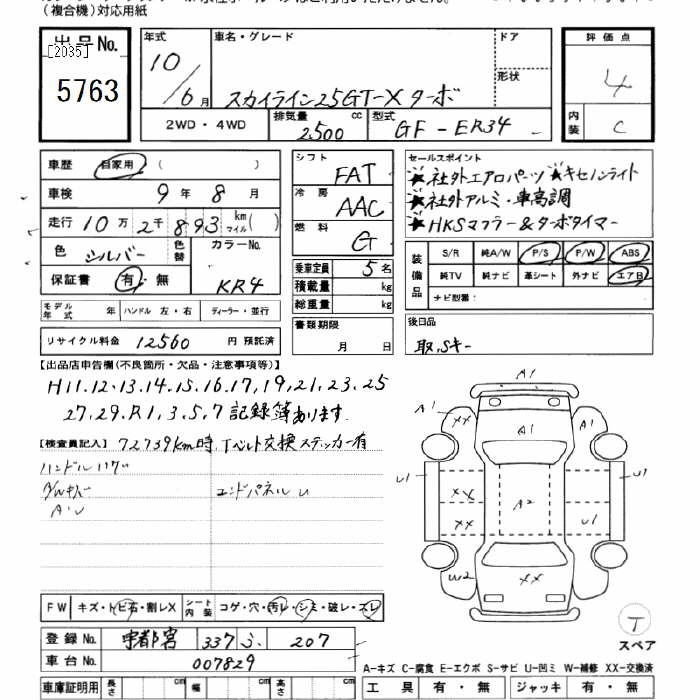 (複合機)対応用紙
出品No.
[2035]
5763
年式 10/6月
車名・グレード スカイライン25GT-Xターボ
ドア
形状
評価点 4
内装 C
2WD・4WD 排気量 2500 cc 型式 GF-ER34
車歴 自家用 ( )
車検 9年8月
走行 10万2千893 km マイル( )
色 シルバー 色替 カラーNo. KR4
保証書 有・無
モデル年式 年 ハンドル 左・右 ディーラー・並行
リサイクル料金 12560 円 預託済
シフト FAT
冷房 AAC
燃料 G
乗車定員 5名
積載量 kg
総重量 kg
書類期限
月 日
セールスポイント
★社外エアロパーツ ★キセノンライト
★社外アルミ・車高調
★HKSマフラー&ターボタイマー
装備品 S/R 純A/W P/S P/W ABS
純TV 純ナビ 革シート 外ナビ エアB
ナビ型番:
後日品
取,Sキー
【出品店申告欄(不良箇所・欠品・注意事項等)】
H11.12.13.14.15.16.17,19,21,23,25
27,29,R1,3,5,7 記録簿あります
【検査員記入】 72739km時,Tベルト交換ステッカー有
エンドパネルU
A・U
A1
A1
A1
A1
XX
U1
U1
XX
A2
XX
U1
W2
XX
T
スペア
FW キズ・トビ石・割レX シート内装 コゲ・穴・汚レ・シミ・破レ・スレ
登録No. 宇都宮 337 ふ 207
車台No. 007829
A-キズ C-腐食 E-エクボ S-サビ U-凹ミ W-補修 XX-交換済
車庫証明用 長さ cm 幅 cm 高さ cm
工具 有・無 ジャッキ 有・無